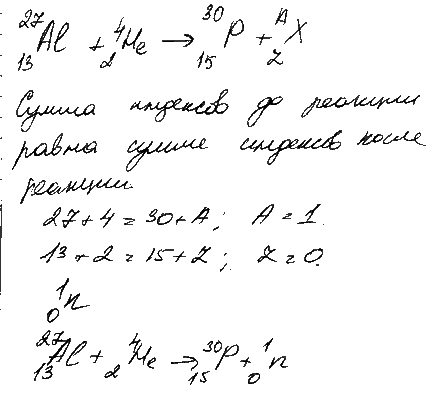 ²⁷₁₃Al + ⁴₂He → ³⁰₁₅P + ᴬ_ZX
Сумма индексов до реакции
равна сумме индексов после
реакции.
27+4=30+A; A=1.
13+2=15+Z; Z=0.
¹₀n
²⁷₁₃Al + ⁴₂He → ³⁰₁₅P + ¹₀n